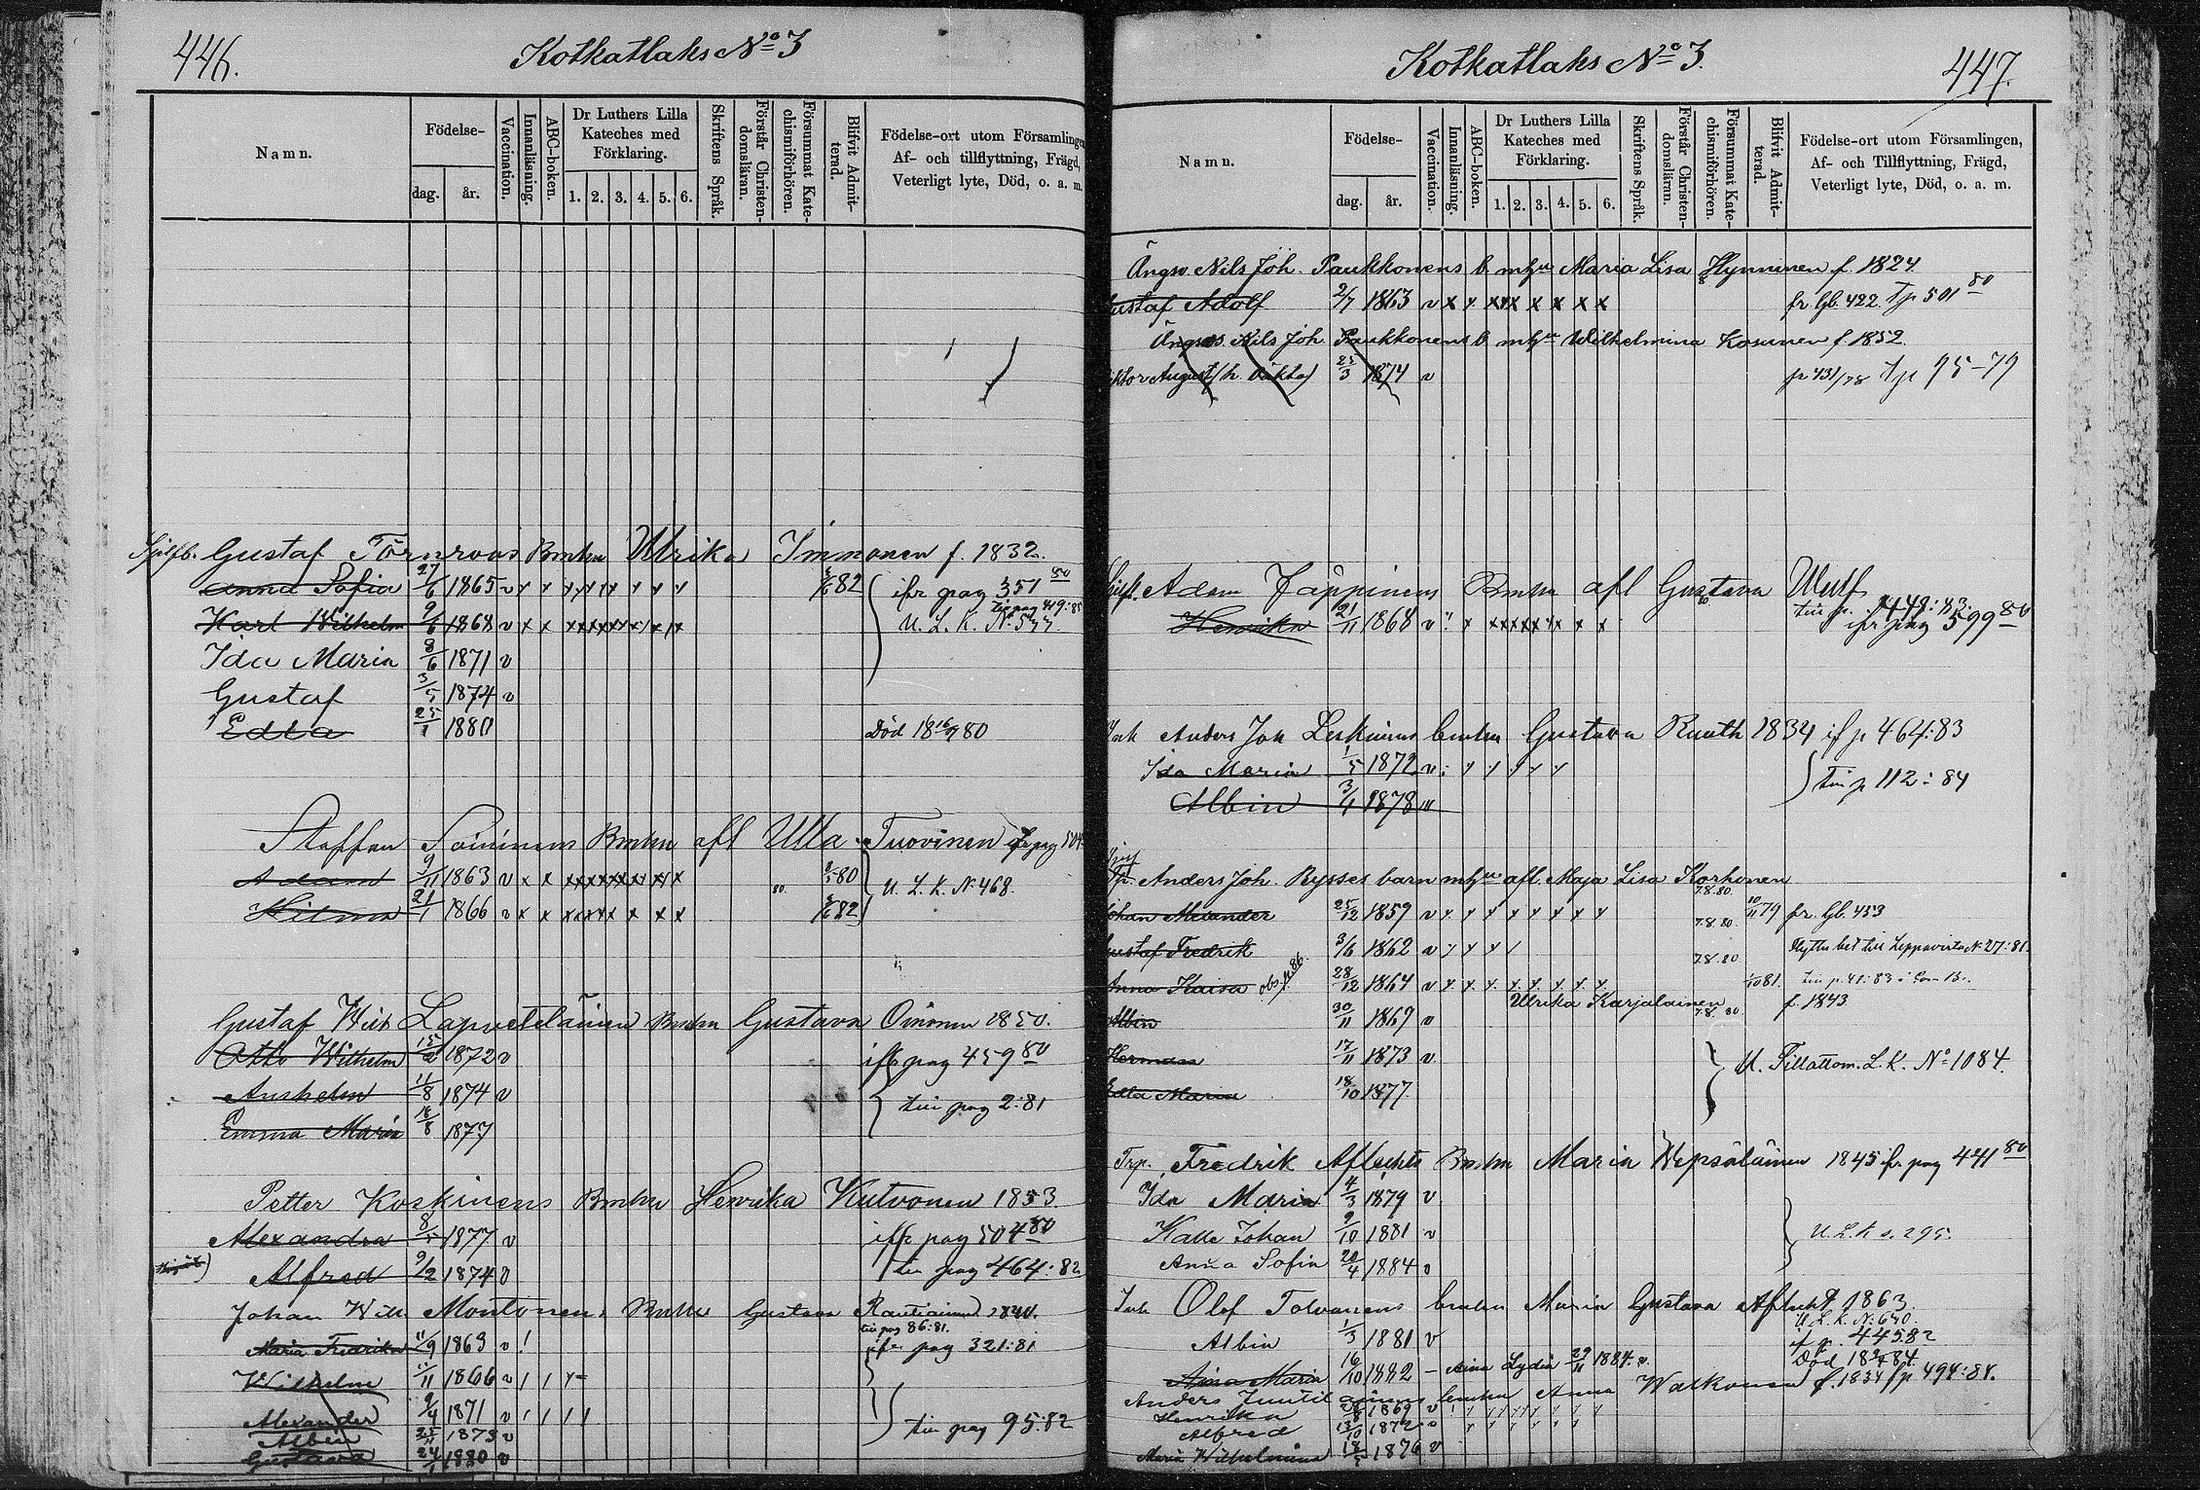 446.
Kotkatlaks No 3
Namn.
Födelse-
dag.
år.
Vaccination.
Innanläsning.
ABC-boken.
Dr Luthers Lilla
Kateches med
Förklaring.
1. 2. 3. 4. 5. 6.
Skriftens Språk.
Förstår Christen-
domsläran.
Försummat Kate-
chismiförhören.
Blifvit Admit-
terad.
Födelse-ort utom Församlingen
Af- och tillflyttning, Frägd,
Veterligt lyte, Död, o. a. m.
Gustaf Törnroos Bmhu Ulrika Immonen f. 1832.
Anna Sofia 27/6 1865 v x x x x x x x x x 82 ifr pag 351 80
Karl Wilhelm 9/6 1868 v x x x x x x x x x U. L. K. No
Ida Maria 8/6 1871 v
Gustaf 3/5 1874 v
Edla 25/1 1880 Död 18 16/9 80
Staffan Soininens Bmhu afl Ulla Tuovinen ifr pag 504
Adam 9/11 1863 v x x x x x x x x x 80 U. L. K. No 468.
Hilma 21/1 1866 v x x x x x x x x x 82
Gustaf Wilh Lapveteläinen Bmhu Gustava Oinonen 1850.
Otto Wilhelm 15/2 1872 v ifr pag 459 80
Anshelm 11/8 1874 v till pag 2:81
Emma Maria 18/8 1877
Petter Koskinens Bmhu Henrika Kutvonen 1853.
Alexandra 8/5 1877 v ifr pag 504 80
Alfred 9/2 1874 v till pag 464:82
Johan Will Montonens Bmhu Gustava Rautiainen 1840.
till pag 86:81.
Maria Fredrika 11/9 1863 v ifr pag 321:81
Wilhelm 11/11 1866 v
Alexander 9/4 1871 v till pag 95:82
Albin 25/11 1873 v
Gustava 24/1 1880 v
447.
Kotkatlaks No 3.
Namn.
Födelse-
dag.
år.
Vaccination.
Innanläsning.
ABC-boken.
Dr Luthers Lilla
Kateches med
Förklaring.
1. 2. 3. 4. 5. 6.
Skriftens Språk.
Förstår Christen-
domsläran.
Försummat Kate-
chismiförhören.
Blifvit Admit-
terad.
Födelse-ort utom Församlingen,
Af- och Tillflyttning, Frägd,
Veterligt lyte, Död, o. a. m.
Ängsv. Nils Joh. Paukkonens b. mhu Maria Lisa Hynninen f. 1824.
Gustaf Adolf 2/7 1863 v x x x x x x x x x fr. Gb. 422. Tp 501 80
Ängsv. Nils Joh. Paukkonens b. mhu Wilhelmina Kosunen f. 1852.
Viktor August 25/3 1874 v fr 431/78 Tp 95-79
Adam Jäppinens Bmhu afl Gustava Wulf
Henrika 21/11 1868 v ifr pag 599 80
Anders Joh Leskinens bmhu Gustava Ruuth 1834 if p 464:83
Ida Maria 1/5 1872 v till p 112:84
Albin 3/4 1878
Anders Joh. Rysses barn mhu afl. Maja Lisa Korhonen
Johan Alexander 25/12 1859 v x x x x x x x x 10/11 79 fr. Gb. 433
Gustaf Fredrik 3/6 1862 v x x x Flyttn. bet till Leppävirta No 27:81.
Anna Kaisa 28/12 1864 v x x x x x x x x 81. till p. 41:83
Ulrika Karjalainen f. 1843
Albin 30/11 1869 v
Herman 17/11 1873 v U. Tillattom. L. K. No 1084.
Edla Maria 18/10 1877.
Trp. Fredrik Aflechts Bmhu Maria Wepsäläinen 1845 fr pag 441 80
Ida Maria 4/3 1879 v
Kalle Johan 9/10 1881 v U. L. K s. 295.
Anna Sofia 20/4 1884 v
Olof Tolvanens bmhu Maria Gustava Aflecht 1863.
U. L. K. No 640.
Albin 1/3 1881 v if p. 445.82
Aina Maria 16/10 1882 – Aina Lydia 29/11 1884. v. Död 84.
Anders Juutilainens bmhu Anna Walkonen f. 1834 fr p 494:84.
Henrika 1869 v
Alfred 13/10 1872 v
Maria Wilhelmina 1876 v